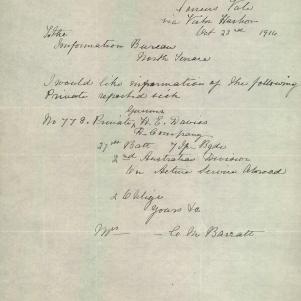 Vale
via
Oct 23rd 1916
To the
Information Bureau
North Terrace
I would like information of the following
Private reported sick
No 778. Private, H. E. Davies
A Company
27th Batt 7 In Bgde
2nd Australian Division
On Active Service Abroad
& Oblige
Yours &c
Mrs — C. M. Barratt